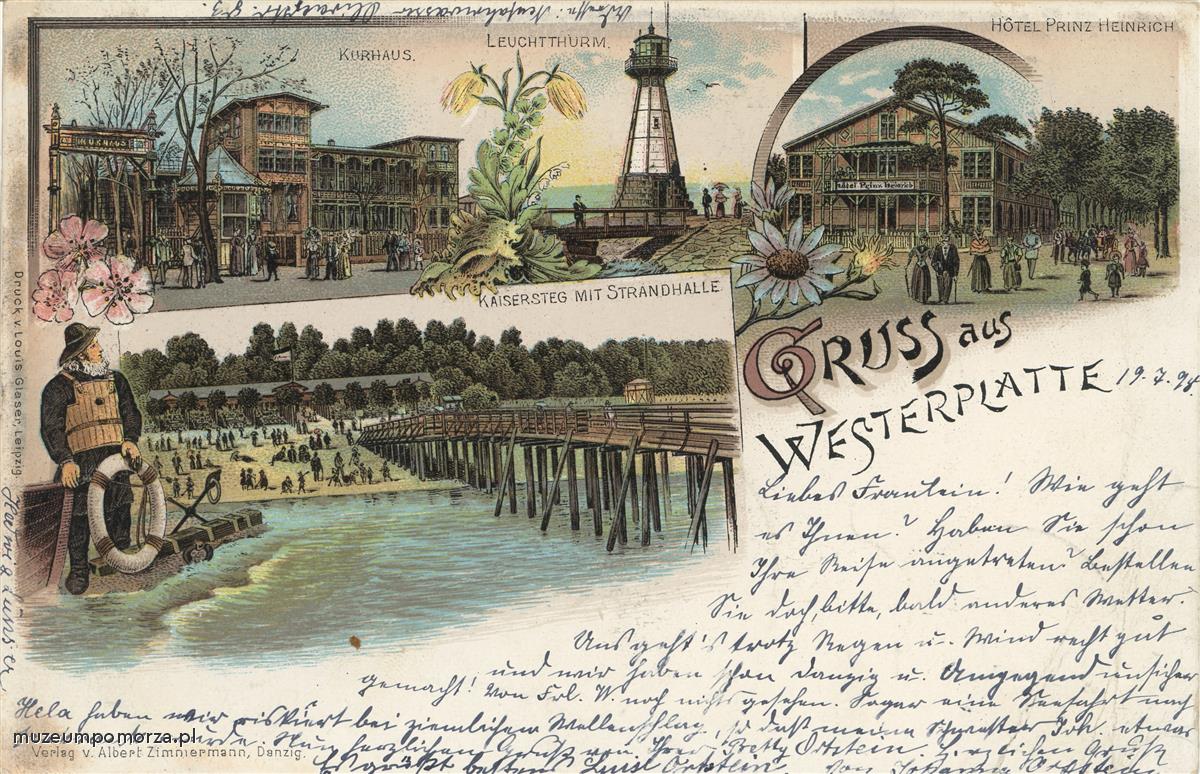 Adresse: Neufahrwasser
KURHAUS.
LEUCHTTHURM.
HÔTEL PRINZ HEINRICH
KURHAUS
Hôtel Prinz Heinrich
KAISERSTEG MIT STRANDHALLE
GRUSS aus
WESTERPLATTE 19.7.98.
Liebes Fräulein! Wie geht
es Ihnen? Haben Sie schon
Ihre Reise angetreten? Bestellen
Sie doch, bitte, bald anderes Wetter.
Uns geht's trotz Regen u. Wind recht gut
und wir haben schon Danzig u. Umgegend unsicher
gemacht! Von Frl. W. noch nichts gesehen. Sogar eine Seefahrt nach
Hela haben wir riskiert bei ziemlichem Wellenschlag, so daß meine Schwester Joh. etwas
wurde. Nun herzlichen Gruß von Ihrer Betty Ortstein. Herzlichen Gruß
Es grüßt bestens Luise Ortstein. von Johanna Ortstein
Druck v. Louis Glaser, Leipzig
Verlag v. Albert Zimmermann, Danzig.
muzeumpomorza.pl